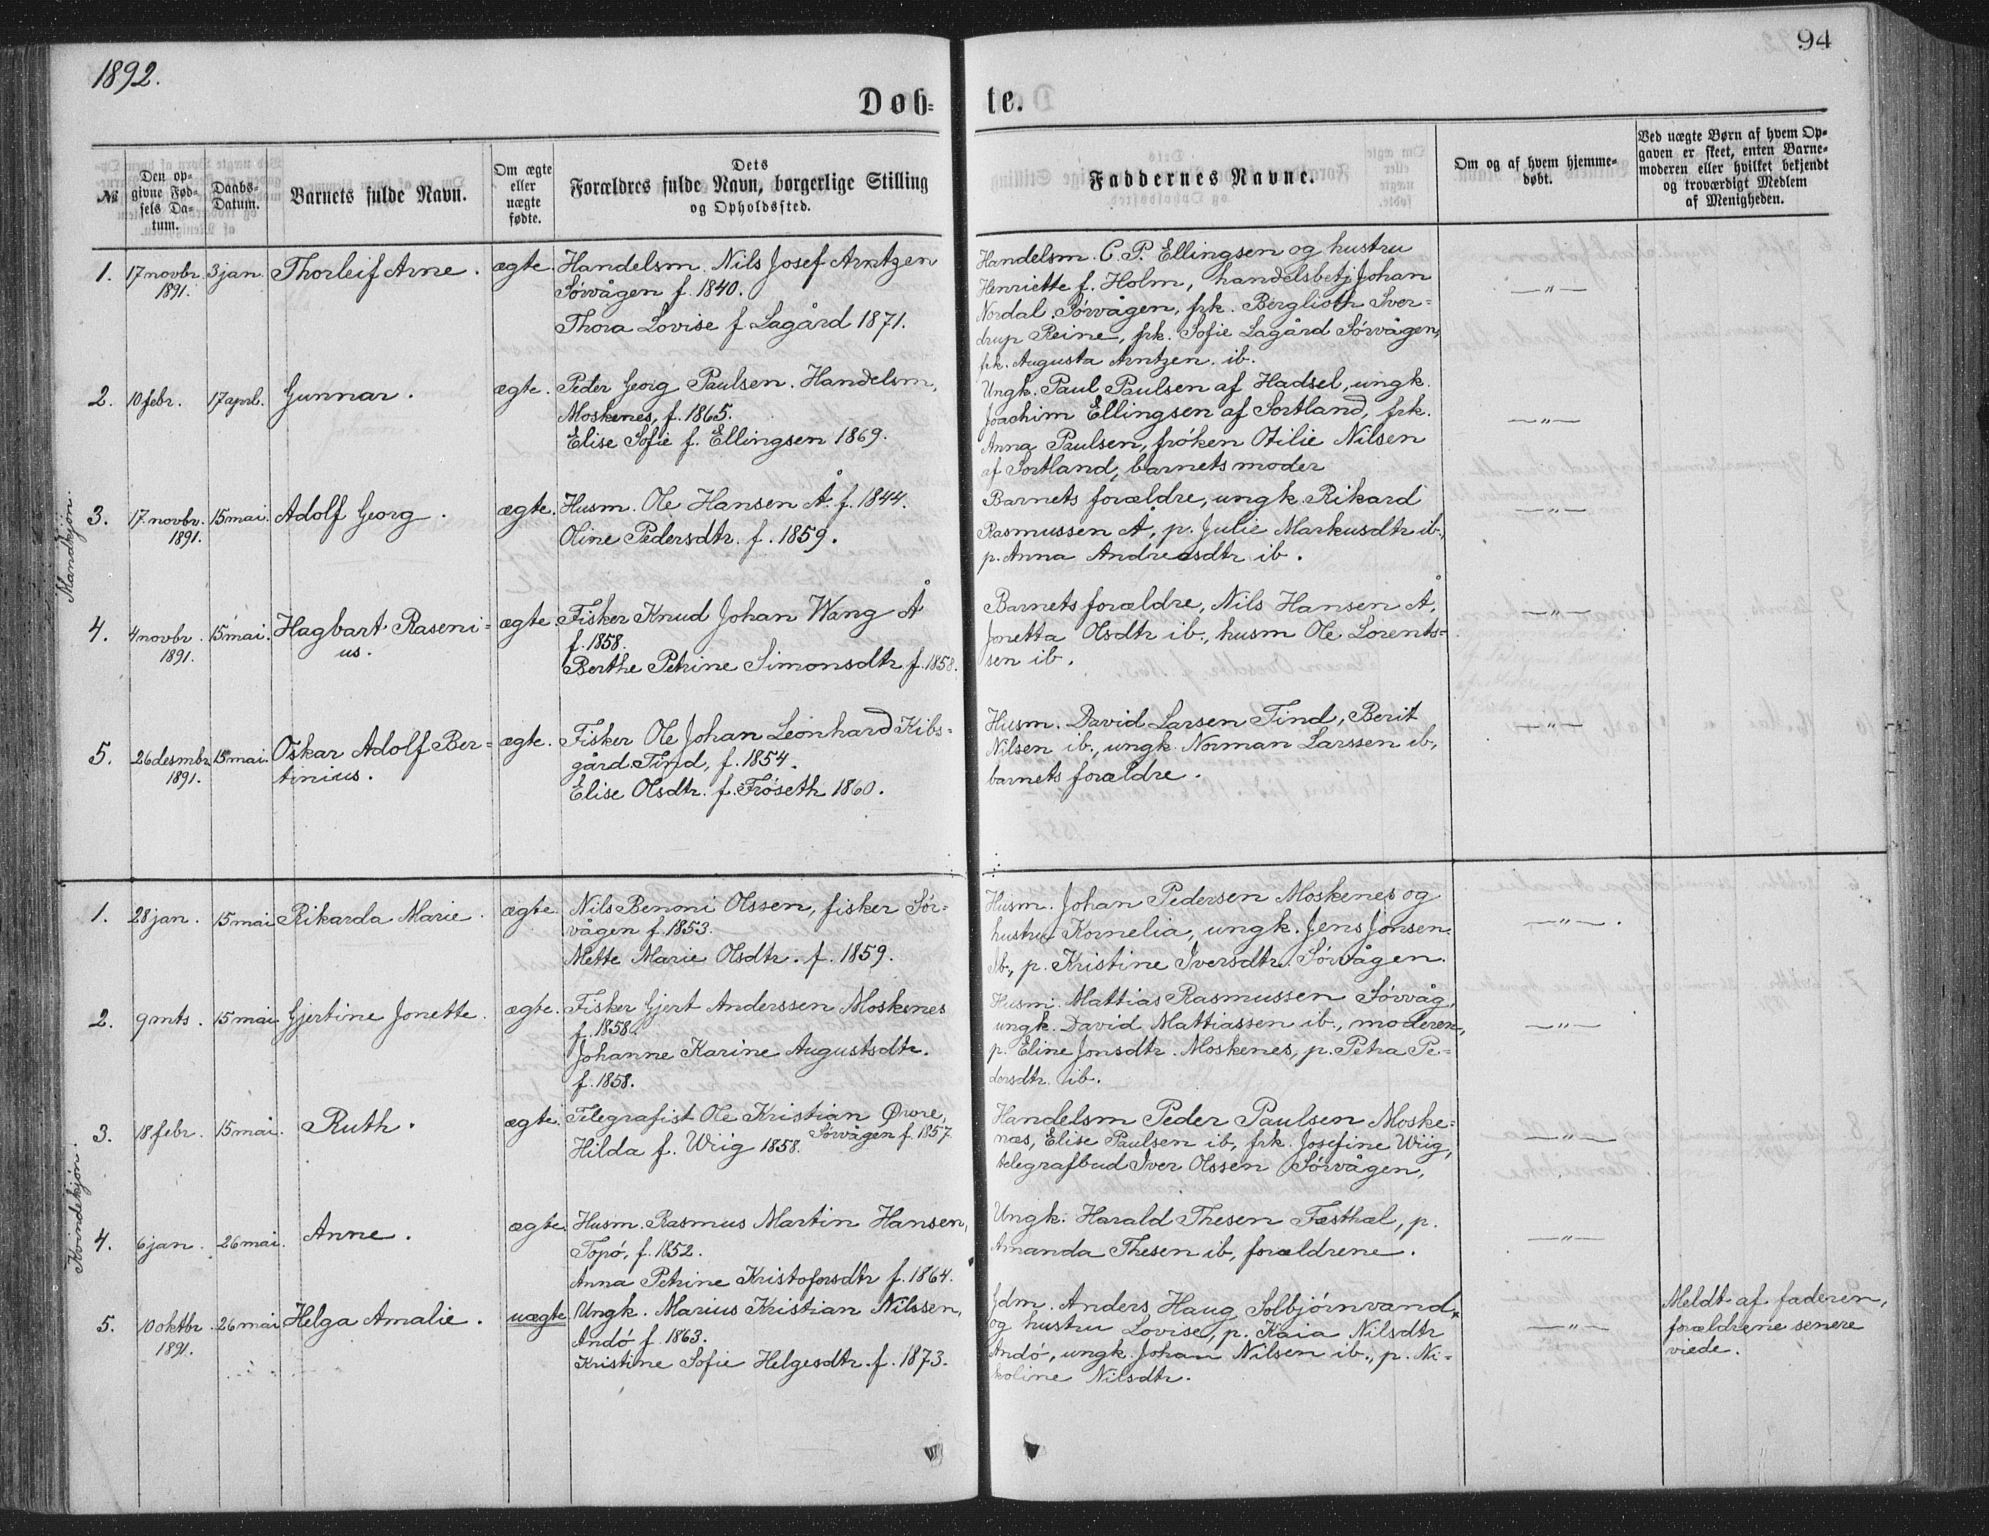 1892.
94
Døb-
te.
№
Den op-
givne Fød-
sels Da-
tum.
Daabs-
Datum.
Barnets fulde Navn.
Om ægte
eller
uægte
fødte.
Dets
Forældres fulde Navn, borgerlige Stilling
og Opholdssted.
Faddernes Navne.
Om og af hvem hjemme-
døbt.
Ved uægte Børn af hvem Op-
gaven er skeet, enten Barne-
moderen eller hvilket bekjendt
og troværdigt Medlem
af Menigheden.
Mandkjøn.
1. 17 novbr. 3 jan. Thorleif Arne. ægte
1891.
Handelsm. Nils Josef Arntzen
Sørvågen f. 1840.
Thora Lovise f. Lagård 1871.
Handelsm. C. P. Ellingsen og hustru
Henriette f. Holm, handelsbetj Johan
Nordal Sørvågen, frk. Berglioth Sver-
drup Reine, frk. Sofie Lagård Sørvågen,
frk. Augusta Arntzen ib.
—"—
2. 10 febr. 17 aprl. Gunnar. ægte.
Peder Georg Paulsen. Handelsm.
Moskenes, f. 1865.
Elise Sofie f. Ellingsen 1869.
Ungk. Paul Paulsen af Hadsel, ungk.
Joachim Ellingsen af Sortland, frk.
Anna Paulsen, frøken Otilie Nilsen
af Sortland, barnets moder
—"—
3. 17 novbr. 15 mai. Adolf Georg. ægte.
1891.
Husm. Ole Hansen Å. f. 1844.
Oline Pedersdtr. f. 1859.
Barnets forældre, ungk. Rikard
Rasmussen Å, p. Julie Markusdtr ib.,
p. Anna Andreasdtr ib.
—"—
4. 4 novbr. 15 mai. Hagbart Raseni-
1891. us.
ægte.
Fisker Knud Johan Wang Å
f. 1858.
Berthe Petrine Simonsdtr f. 1858.
Barnets forældre, Nils Hansen Å,
Jonetta Olsdtr ib., husm Ole Lorents-
sen ib.
—"—
5. 26 desmbr. 15 mai. Oskar Adolf Ber-
1891. tinius.
ægte.
Fisker Ole Johan Leonhard Kibs-
gård Tind, f. 1854.
Elise Olsdtr. f. Frøseth 1860.
Husm. David Larsen Tind, Berit
Nilsen ib., ungk. Norman Larssen ib.,
barnets forældre.
—"—
Kvindekjøn.
1. 28 jan. 15 mai Rikarda Marie. ægte.
Nils Benoni Olssen, fisker Sør-
vågen f. 1853.
Mette Marie Olsdtr. f. 1859.
Husm. Johan Pedersen Moskenes og
hustru Kornelia, ungk. Jens Jonsen
ib., p. Kristine Iversdtr. Sørvågen.
—"—.
2. 9 mts. 15 mai Gjertine Jonette. ægte.
Fisker Gjert Anderssen Moskenes
f. 1858.
Johanne Karine Augustsdtr.
f. 1858.
Husm. Mattias Rasmussen Sørvåg,
ungk. David Mattiassen ib., moderen,
p. Eline Jonsdtr. Moskenes, p. Petra Pe-
dersdtr. ib.
—"—
3. 18 febr. 15 mai. Ruth. ægte.
Telegrafist Ole Kristian Øwre,
Sørvågen f. 1857.
Hilda f. Wiig 1858.
Handelsm Peder Paulsen Moske-
nes, Elise Paulsen ib, frk. Josefine Wiig,
telegrafbud Iver Olssen Sørvågen,
—"—
4. 6 jan. 26 mai. Anne. ægte.
Husm. Rasmus Martin Hansen,
Topø, f. 1852.
Anna Petrine Kristofersdtr f. 1864.
Ungk. Harald Thesen Fæsthæl, p.
Amanda Thesen ib, forældrene.
—"—
5. 10 oktbr. 26 mai Helga Amalie. uægte
1891.
Ungk. Marius Kristian Nilssen,
Andø f. 1863.
Kristine Sofie Helgesdtr. f. 1873.
Jdm. Anders Haug Solbjørnvand
og hustru Lovise, p. Kaia Nilsdtr
Andø, ungk. Johan Nilsen ib., p. Ni-
koline Nilsdtr.
—"—
Meldt af faderen,
forældrene senere
viede.